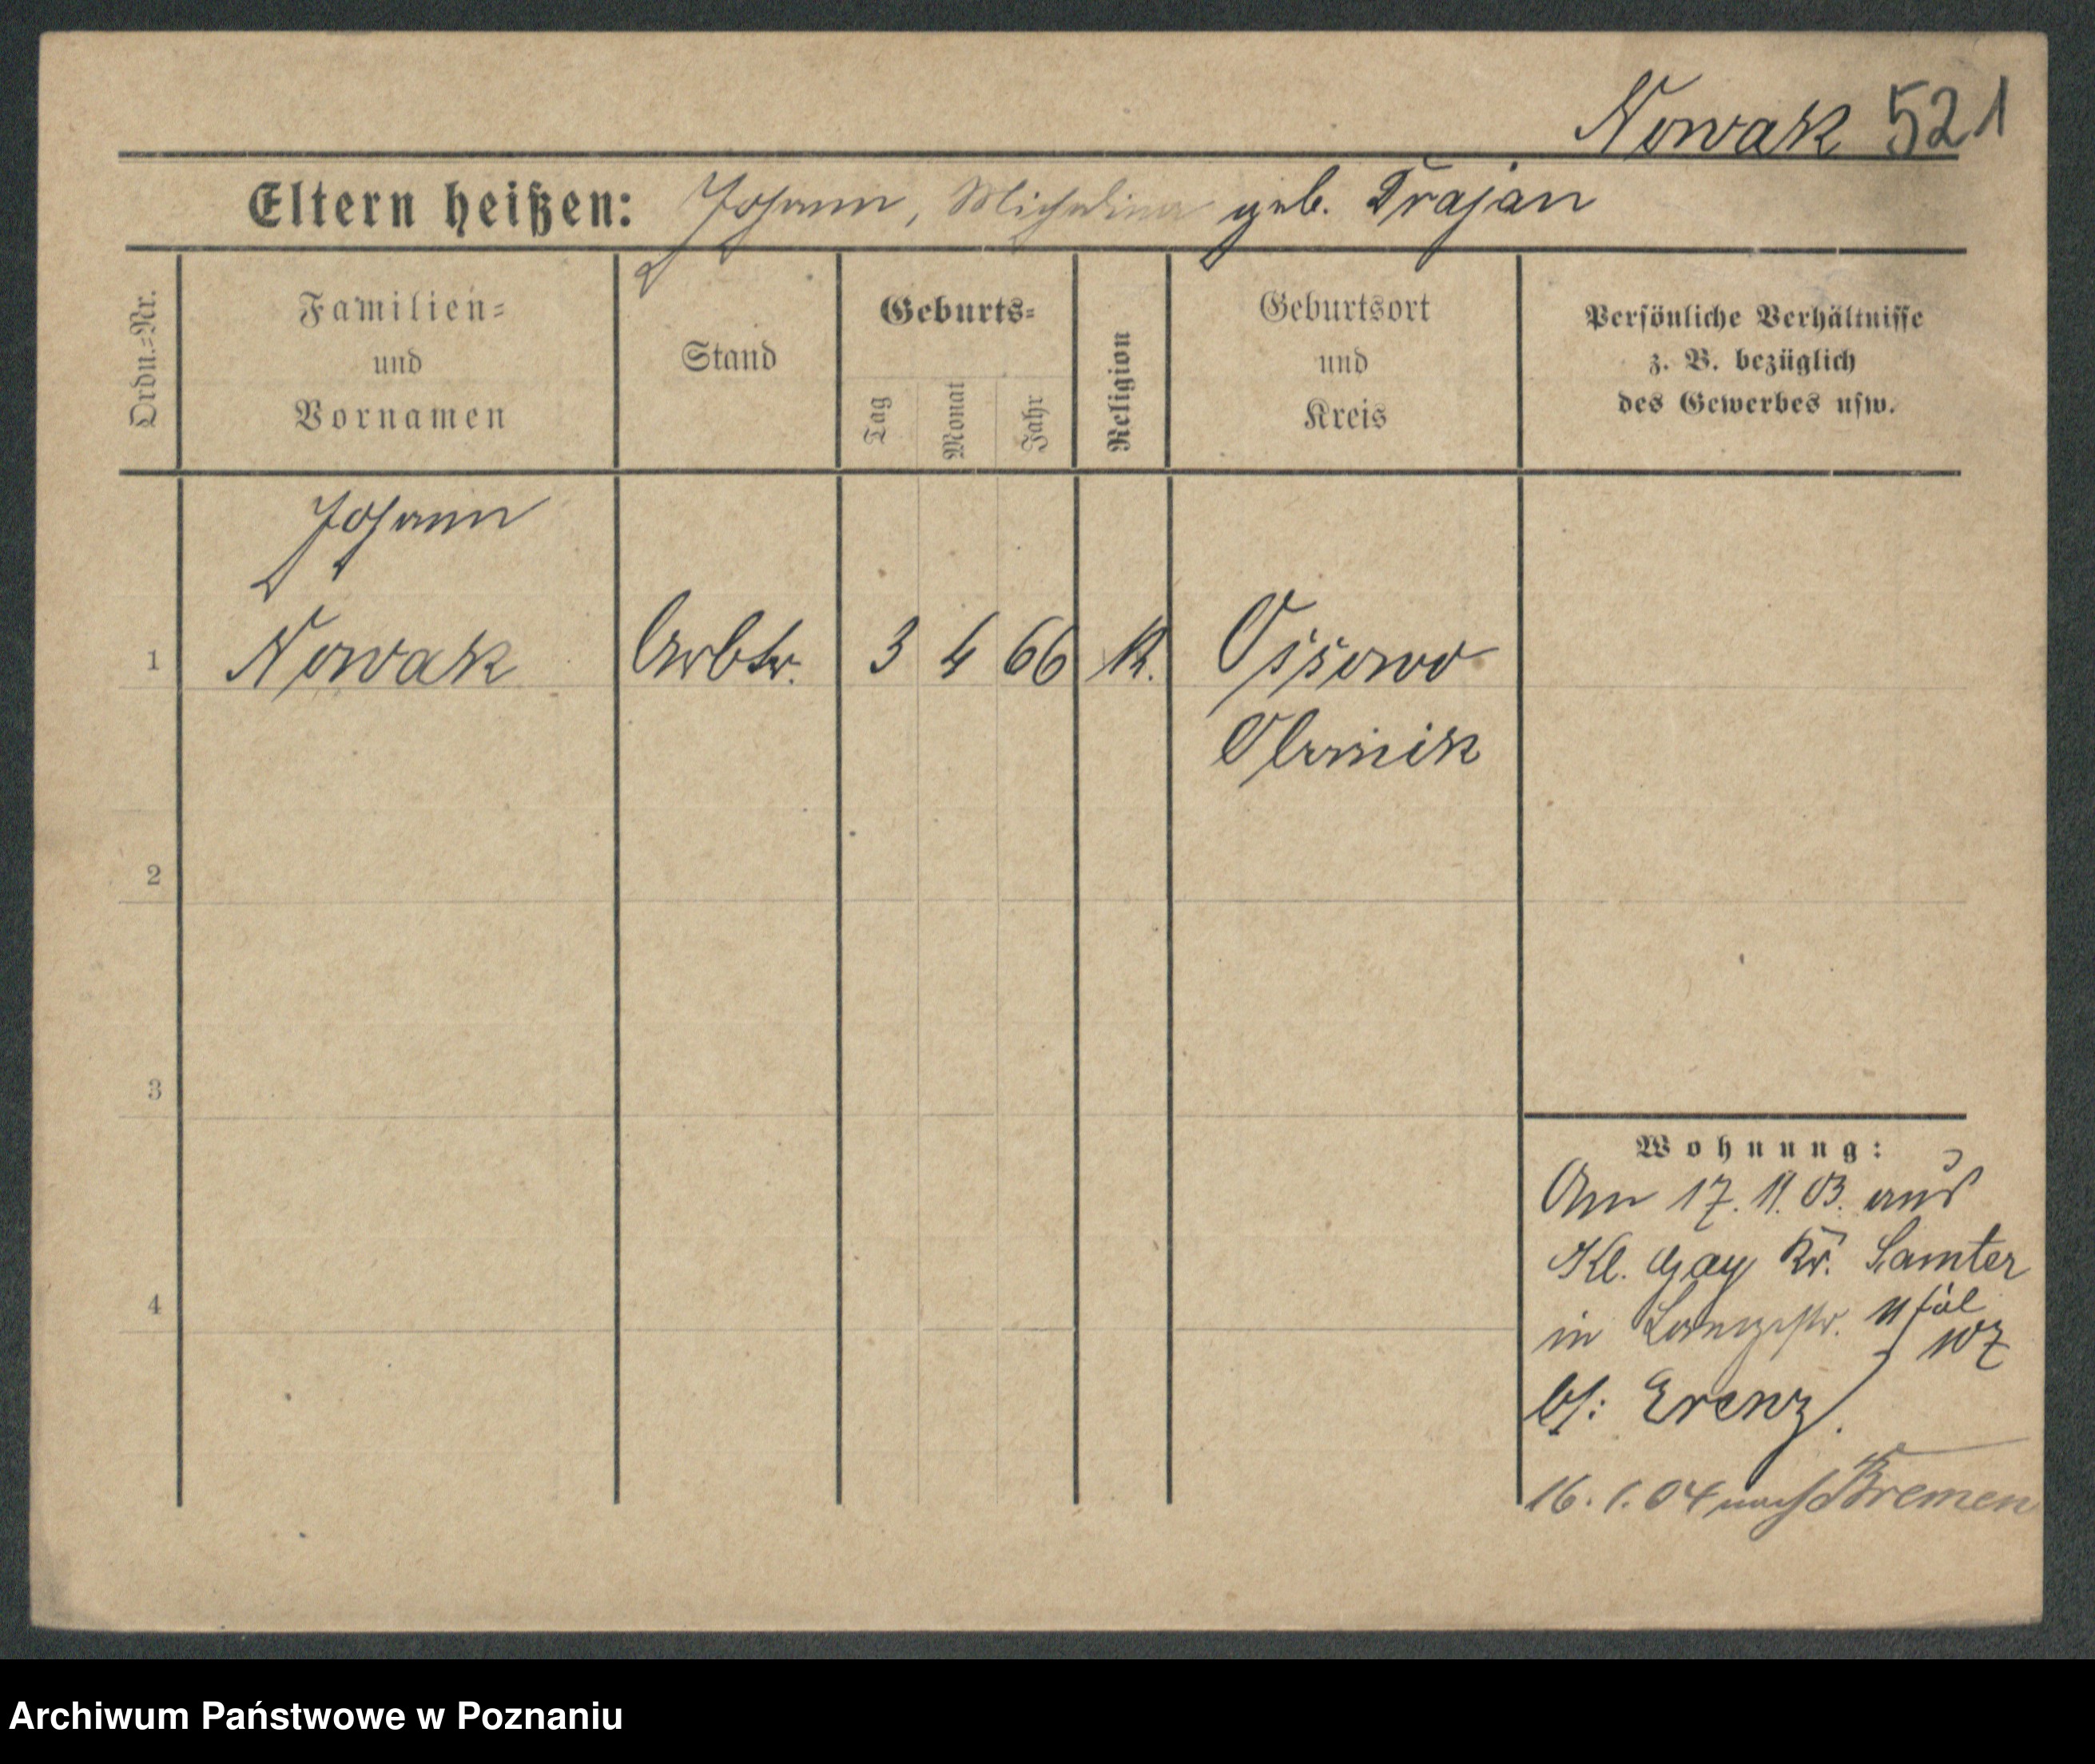 Nowak 521
Eltern heißen: Johann, Michalina geb. Trajan
Ordn.-Nr.
Familien-
und
Vornamen
Stand
Geburts-
Tag
Monat
Jahr
Religion
Geburtsort
und
Kreis
Persönliche Verhältnisse
z. B. bezüglich
des Gewerbes usw.
Johann
1 Nowak Arbtr. 3 4 66 K. Ossowo
Obornik
2
3
4
Wohnung:
Am 17. 11. 03. aus
Kl. Gay Kr. Samter
in Langestr. 11
bei: Erenz.
16. 1. 04 nach Bremen
Archiwum Państwowe w Poznaniu